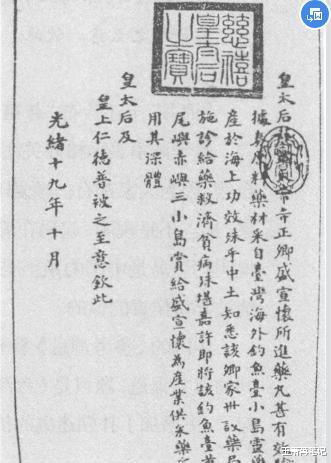 慈禧
皇太后
之寶
皇太后
寺正卿盛宣懷所進藥丸甚有效
原料藥材采自臺灣海外釣魚臺小島靈
產於海上功效殊乎中土知悉該卿家世設藥
施診給藥救濟貧病殊堪嘉許即將該釣魚臺
尾嶼赤嶼三小島賞給盛宣懷為產業供采藥
用其深體
皇太后及
皇上仁德普被之至意欽此
光緒十九年十月